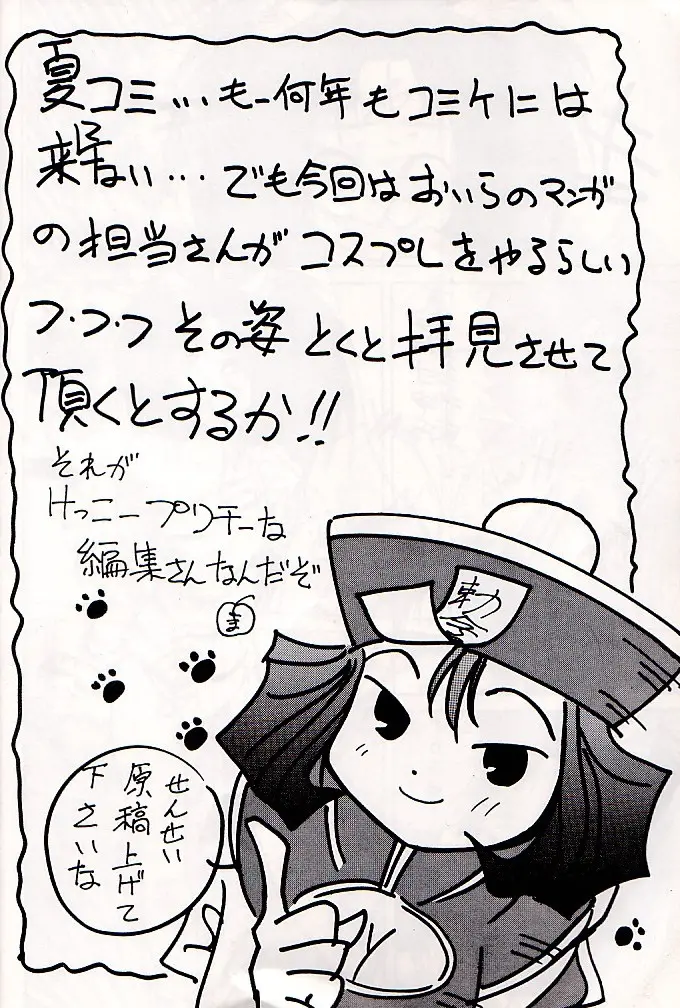 夏コミ…もー何年もコミケには
来てない…でも今回はおいらのマンガ
の担当さんがコスプレをやるらしい
フ・フ・フその姿とくと拝見させて
頂くとするか!!
それが
けっこープリチーな
編集さんなんだぞ
ま
勅令
せんせい
原稿上げて
下さいな